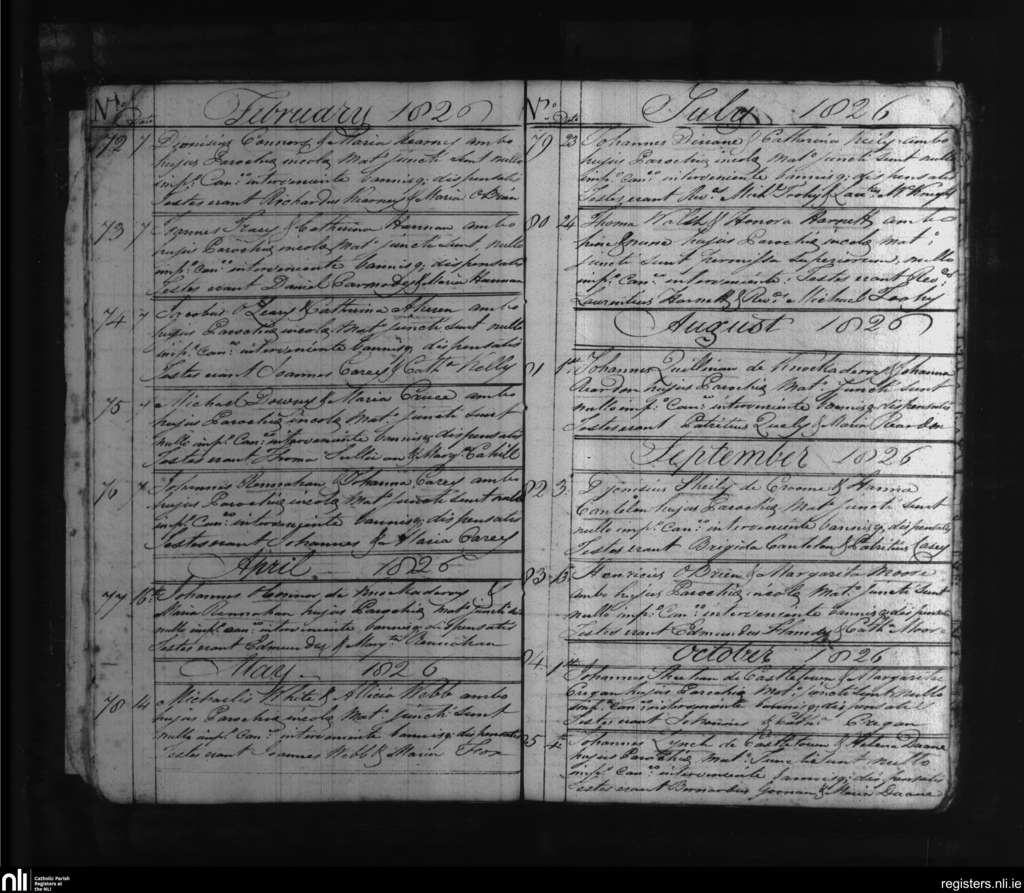 No. Date February 1826
72 7 Dionisius Connors & Maria Kearney ambo
hujus Parochiæ incolæ Mat.o juncti sunt nullo
imp.o Can.co interveniente bannisq; dispensatis
Testes erant Richardus Kearney & Maria O'Brien
73 7 Tracy & Catherina Hannan ambo
hujus Parochiæ incolæ Mat.o juncti sunt nullo
imp.o Can.co interveniente bannisq; dispensatis
Testes erant Daniel Carmody & Maria Hannan
74 7 Jacobus O'Leary & Catherina Ahern ambo
hujus Parochiæ incolæ Mat.o juncti sunt nullo
imp.o Can.co interveniente bannisq; dispensatis
Testes erant Joannes Carey & Cath.a Kelly
75 7 Michael Downy & Maria ambo
hujus Parochiæ incolæ Mat.o juncti sunt
nullo imp.o Can.co interveniente bannisq; dispensatis
Testes erant Thoma Sullivan & Mary Cahill
76 7 Johannes & Johanna Carey ambo
hujus Parochiæ incolæ Mat.o juncti sunt nullo
imp.o Can.co interveniente bannisq; dispensatis
Testes erant Johannes & Maria Carey
April 1826
77 Johannes Connor de &
Maria hujus Parochiæ Mat.o juncti
nullo imp.o can.co interveniente bannisq; dispensatis
Testes erant Edmundus &
May 1826
78 4 Michaelis White & Allicia Webb ambo
hujus Parochiæ incolæ Mat.o juncti sunt
nullo imp.o Can.co interveniente bannisq; dispensatis
Testes erant Joannes Webb & Maria
No. Date July 1826
79 23 Johannes & Catherina Reily ambo
hujus Parochiæ incolæ Mat.o juncti sunt nullo
imp.o Can.co interveniente bannisq; dispensatis
Testes erant Rev.d Mich.l &
80 24 Thoma Walsh & Honora Harnett ambo
hujus Parochiæ incolæ Mat.o
juncti sunt nullo
imp.o Can.co interveniente Testes erant Rev.d
Laurentius Harnett & Rev.d Michael
August 1826
81 1st Johannes Quillinan de Knockaderry & Johanna
Reardon hujus Parochiæ Mat.o juncti sunt
nullo imp.o Can.co interveniente bannisq; dispensatis
Testes erant Patritius & Maria Reardon
September 1826
82 3 Dionisius Sheily de Croome & Hanna
Cantelon hujus Parochiæ Mat.o juncti sunt
nullo imp.o Can.co interveniente bannisq; dispensatis
Testes erant Brigida Cantelon & Patritius Casey
83 Henricus O'Brien & Margarita Moore
ambo hujus Parochiæ incolæ Mat.o juncti sunt
nullo imp.o Can.co interveniente bannisq; dispensatis
Testes erant Edmundus & Cath.a Moore
October 1826
84 1st Johannes Sheehan de Castletown & Margarita
Cregan hujus Parochiæ Mat.o juncti sunt nullo
imp.o Can.co interveniente bannisq; dispensatis
Testes erant & Cregan
85 Johannes Lynch de Castletown & Helena Duane
hujus Parochiæ Mat.o juncti sunt nullo
imp.o Can.co interveniente bannisq; dispensatis
Testes erant Bernardus & Maria Duane
nli Catholic Parish
Registers at
the NLI
registers.nli.ie